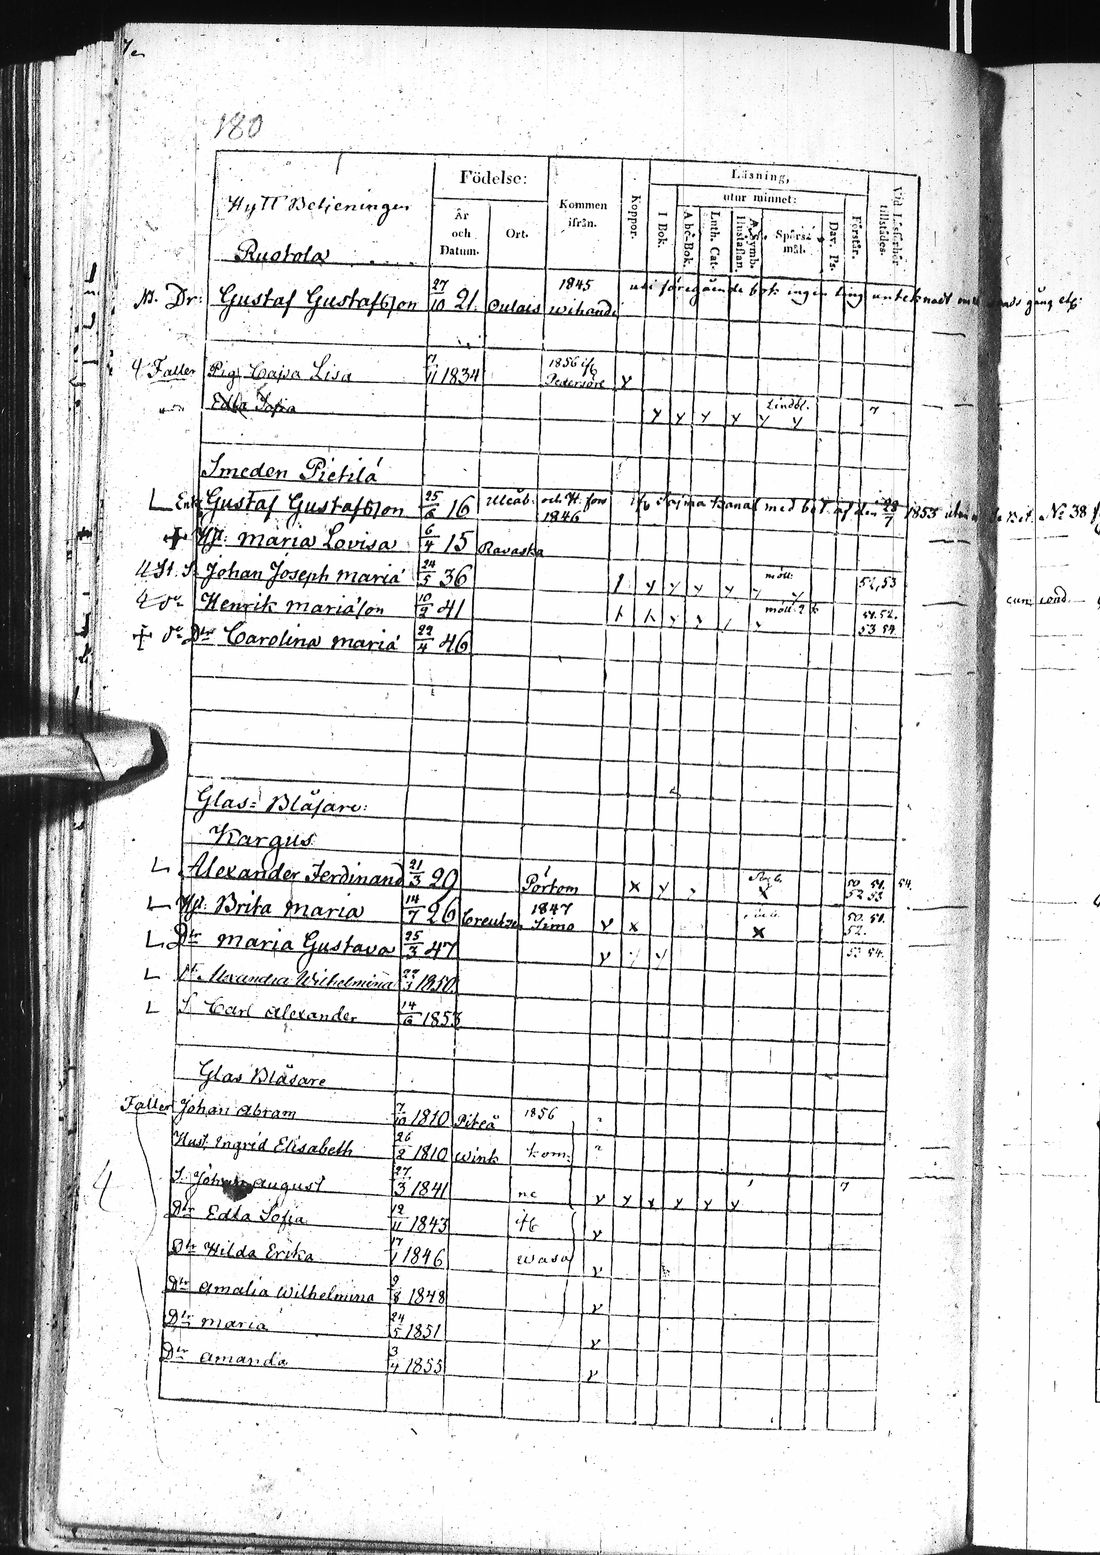 180
Födelse: Läsning,
utur minnet:
Hytt Betjeningen
År och Datum. Ort. Kommen ifrån. Koppor. I Bok. Abc-Bok. Luth. Cat. A. Symb. Hustaflan. Spörsmål. Dav. Ps. Förstår. Vid Läseförhör tillstädes.
Ruotola
Dr: Gustaf Gustafsson 27/10 21. Oulais 1845 wihandi uti föregående bok ingen ting antecknadt
Faller Pig. Cajsa Lisa 1834 1856 Pedersöre
Edla Sofia Lindbl.
Smeden Pietilä
Enkl. Gustaf Gustafsson 25/6 16 Uleåb. och H. fors 1846 Sajma Kanal med bet. af den 28/7 1853 No 38
H. Maria Lovisa 6/4 15 Ravaska
S. Johan Joseph Maria 24/5 36 möll. 52,53
Henrik Mariason 10/2 41 möll. 51.52. 53 54
Dtr Carolina Maria 22/4 46
Glas-Blåsare:
Kargus
Alexander Ferdinand 21/3 20 Pörtom 50 51. 52 53 54.
H. Brita Maria 14/7 26 Creutzen 1847 Simo 50. 51. 52.
Dtr Maria Gustava 25/3 47 53 54.
Alexandra Wilhelmina 1850.
S. Carl Alexander 14/6 1853
Glas Blåsare
Faller Johan Abram 7/10 1810 Piteå 1856
Hust. Ingrid Elisabeth 26/2 1810 Wink kom.
S. Johan August 27/3 1841 ne
4
Dtr Edla Sofia 12/11 1843 ifr
Dtr Hilda Erika 17/1 1846 Wasa
Dtr Amalia Wilhelmina 9/8 1848
Dtr Maria 24/5 1851
Dtr Amanda 3/4 1855